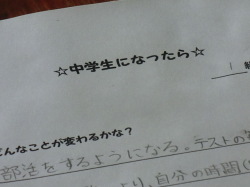 ☆中学生になったら☆
1
んなことが変わるかな？
部活をするようになる。テストの
より、自分の時間（